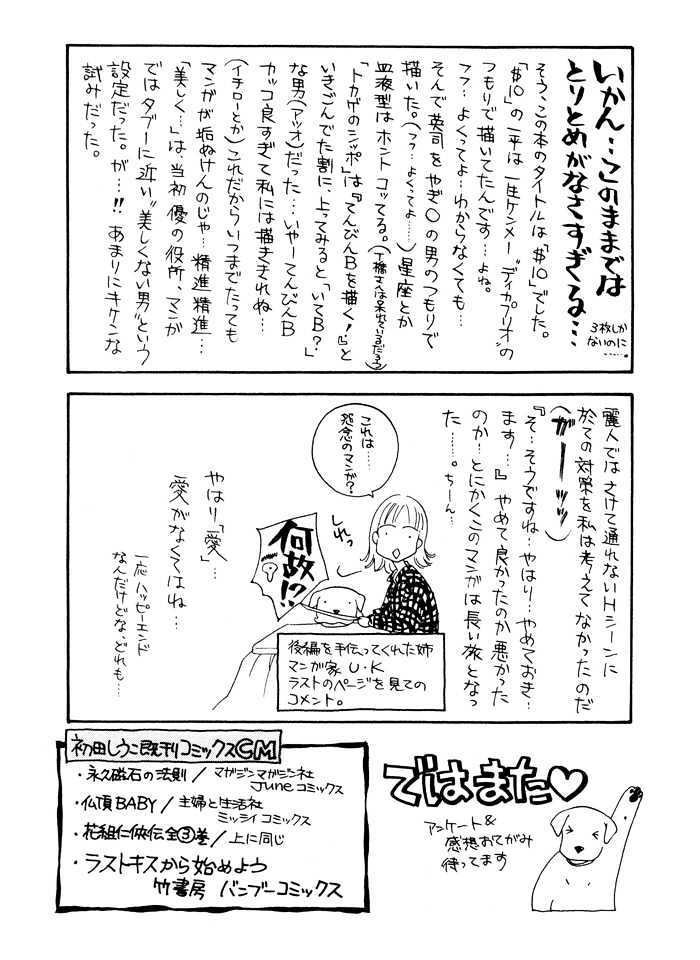 いかん…このままでは
とりとめがなさすぎる…
3枚しか
ないのに
……。
そう、この本のタイトルは「$10」でした。
「$10」の一平は一生ケンメー"ディカプリオ"の
つもりで描いてたんです…よね。
フフ…よくってよ…わからなくても…
そんで英司をやぎ○の男のつもりで
描いた。(フフ…よくってよ……)星座とか
血液型はホントコッてる。
「トカゲのシッポ」は『てんびんBを描く!』と
いきごんでた割に、上ってみると「いてB?」
な男(アツオ)だった…いやーてんびんB
カッコ良すぎて私には描ききれね…
(イチローとか)これだからいつまでたっても
マンガが垢ぬけんのじゃ…精進精進…
「美しく…」は、当初優の役所、マンガ
ではタブーに近い"美しくない男"という
設定だった。が…!!あまりにキケンな
試みだった。
麗人ではさけて通れないHシーンに
於ての対策を私は考えてなかったのだ
(がーーッッ)
『そ…そうですね…やはり…やめておき…
ます…』やめて良かったのか悪かった
のか…とにかくこのマンガは長い旅となっ
た……。ちーん…
これは……
怨念のマンガ?
しれっ
何故!?
後編を手伝ってくれた姉
マンガ家 U・K
ラストのページを見ての
コメント。
やはり「愛」…
愛がなくてはね…
一応ハッピーエンド
なんだけどな、どれも…
初田しうこ既刊コミックスCM
・永久磁石の法則/マガジンマガジン社
Juneコミックス
・仏頂BABY/主婦と生活社
ミッシィコミックス
・花組仁侠伝全③巻/上に同じ
・ラストキスから始めよう
竹書房 バンブーコミックス
ではまた♡
アンケート&
感想おてがみ
待ってます